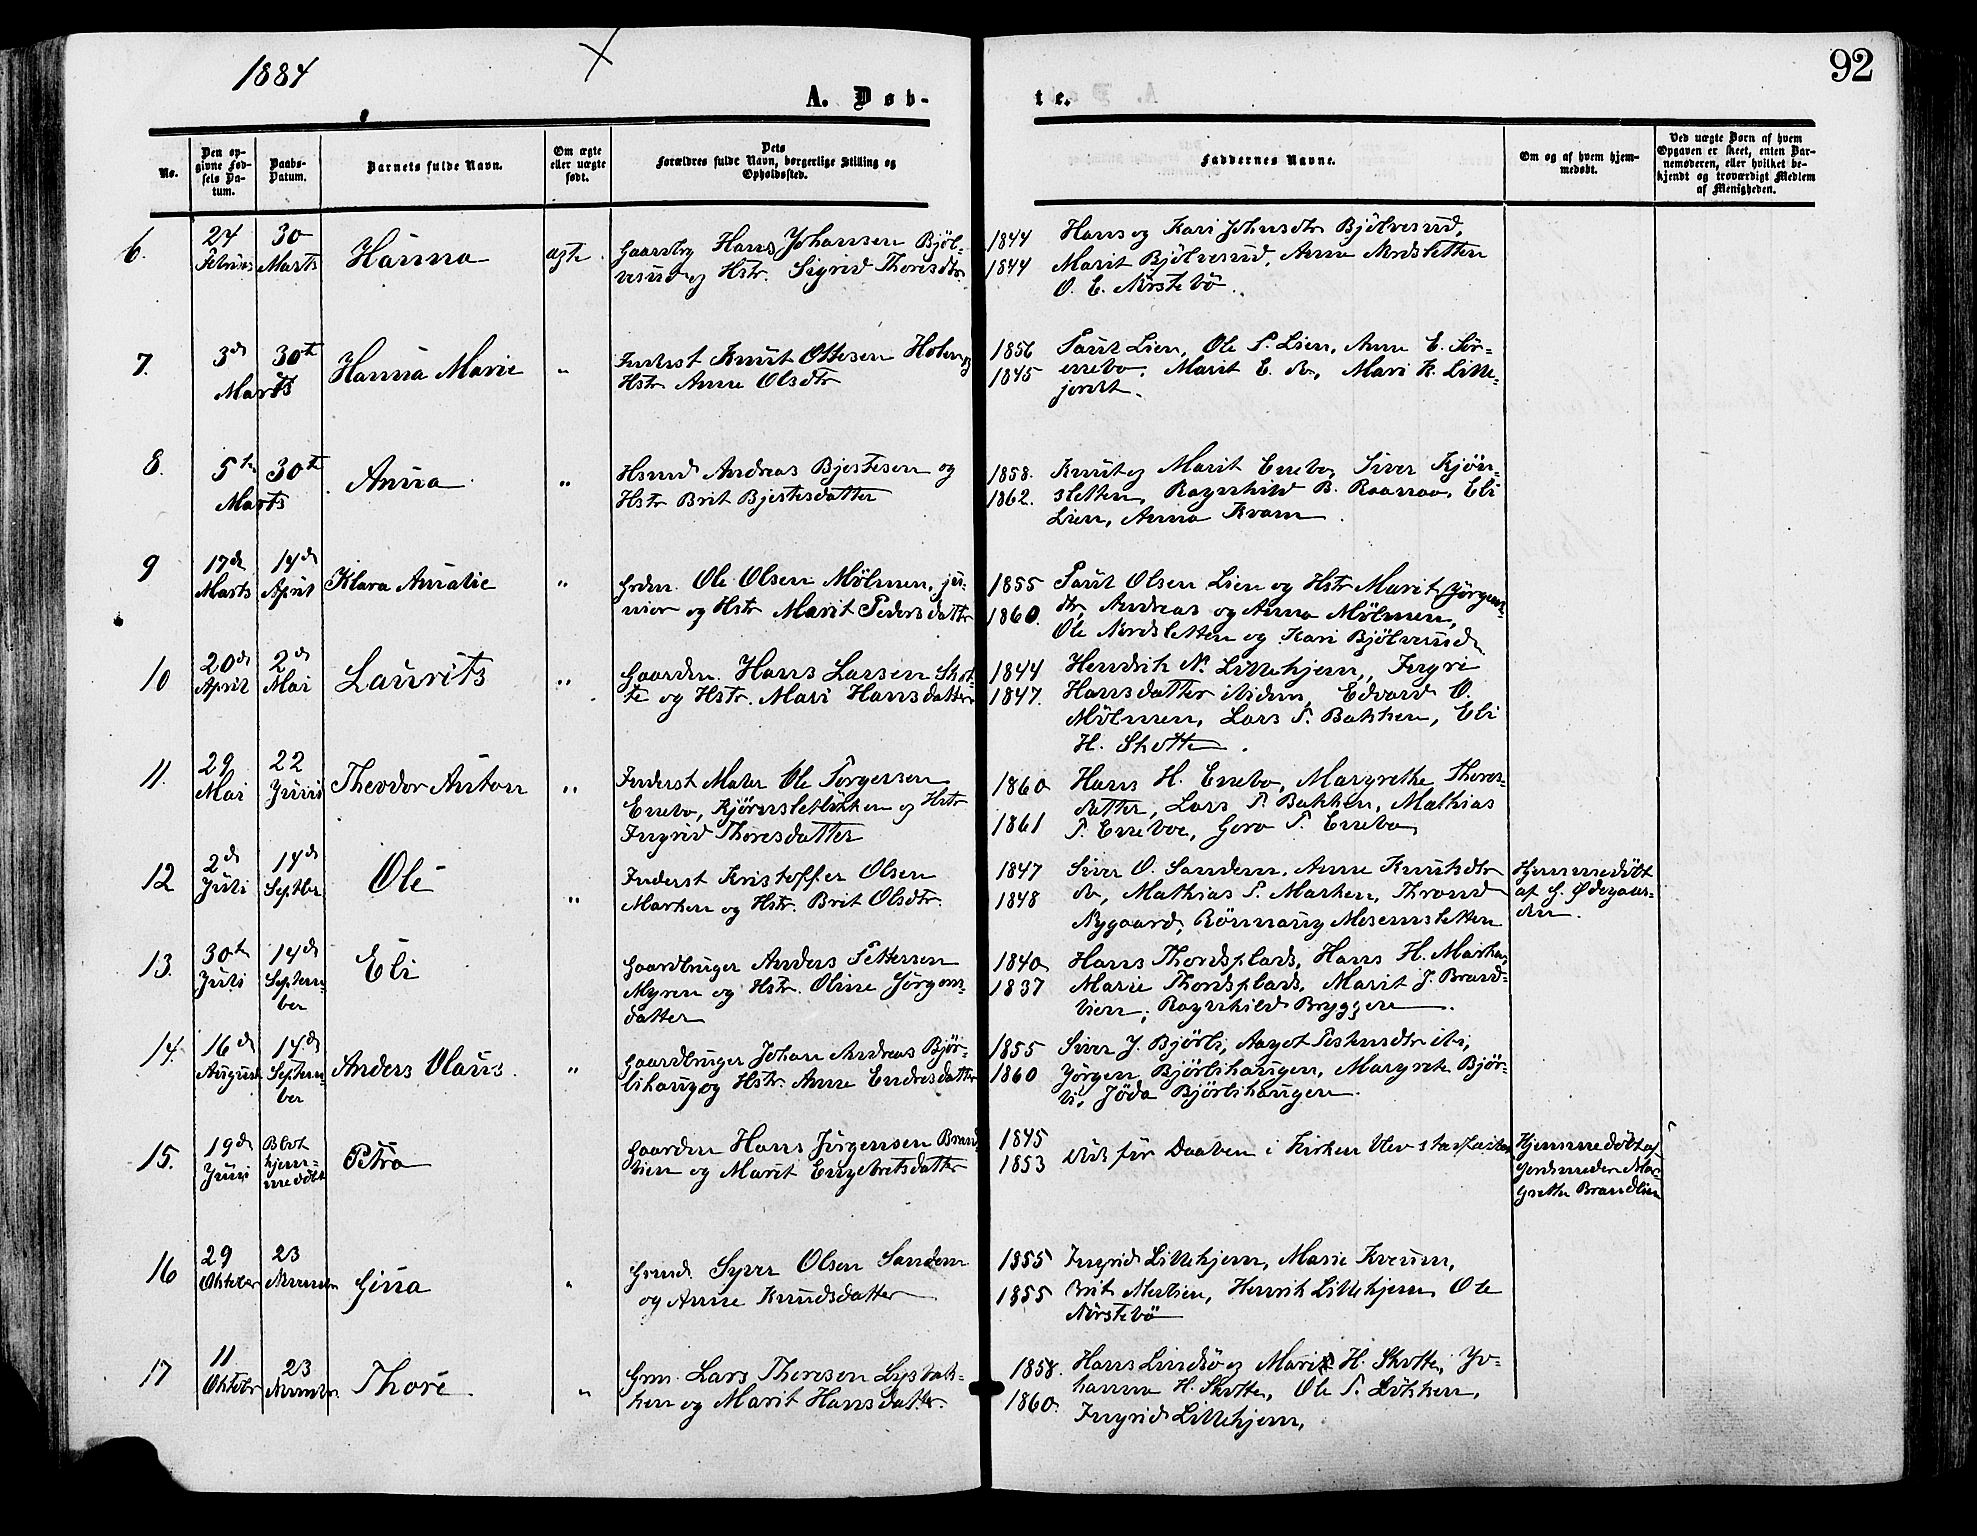 1884
92
A. Døb-
te.
No.
Den op-
givne Fød-
sels Da-
tum.
Daabs-
Datum.
Barnets fulde Navn.
Om ægte
eller uægte
født.
Dets
Forældres fulde Navn, borgerlige Stilling og
Opholdssted.
Faddernes Navne.
Om og af hvem hjem-
medøbt.
Ved uægte Børn af hvem
Opgaven er skeet, enten Bar-
nemoderen, eller hvilket be-
kjendt og troværdigt Medlem
af Menigheden.
6.
24
30
Marts
Hanna
ægte
Hans Johansen Bjöl-
vesud og Hstr. Sigrid Thoresdtr.
1844
1844
Hans og Kari Johnsdtr Bjölvesud,
Marit Bjölvesud, Anne Nordsletten
O. E. Nörstebö.
7.
3de
30te
Marts
Hanna Marie
"
Inderst Knut Ottesen Holen og
Hstr Anne Olsdtr
1856
1845
Paul Lien, Ole P. Lien, Anne E. Sör-
errebo, Marit E. do, Mari K. Lille-
jordet.
8.
5te
30te
Marts
Anna
"
Hsmd Andreas Bjestesen og
Hstr Brit Bjestesdatter
1858.
1862.
Knut og Marit Errebo, Siver Kjön-
sletten, Ragnhild B. Raanaa, Eli
Lien, Anna Kvam.
9
17de
14de
Marts
April
Klara Amalie
"
Grdm. Ole Olsen Mölmen, ju-
nior og Hstr Marit Pedersdatter
1855
1860.
Paul Olsen Lien og Hstr Marit Jörgens-
dtr, Andreas og Anna Mölmen,
Ole Nordsletten og Kari Bjölvesud
10
20de
2den
April
Mai
Laurits
"
Gaardm. Hans Larsen Skot-
te og Hstr. Mari Hansdatter
1844
1847.
Hendrik N. Lillehjem, Ingri
Hansdatter ibidem, Edvard O.
Mölmen, Lars P. Bakken, Eli
H. Skotte.
11.
29
22
Mai
Juni
Theodor Anton
"
Inderst Maler Ole Torgersen
Errebo, Kjörensletlökken og Hstr
Ingrid Thoresdatter
1860
1861
Hans H. Errebo, Margrethe Thores-
datter, Lars P. Bakken, Mathias
P. Erreboe, Goro P. Errebo
12
2de
14de
Juli
Septber
Ole
"
Inderst Kristoffer Olsen
Marken og Hstr. Brit Olsdtr.
1847
1848
Siver O. Sandem, Anne Knutsdtr
do, Mathias P. Marken, Thrond
Nygaard, Rönnaug Mosensletten
Hjemmedöbt
af G. Ödegaar-
den.
13.
30te
14de
Juli
Septem-
ber
Eli
Gaardbruger Anders Pettersen
Myren og Hstr. Oline Jörgens-
datter
1840
1837
Hans Thordsplads, Hans H. Marken,
Marie Thordsplads, Marit J. Brand-
lien, Ragnhild Bryggere.
14.
16de
14de
August
Septem-
ber
Anders Olaus.
"
Gaardbruger Johan Andreas Björ-
lihaug og Hstr. Anne Endresdatter
1855
1860
Siver J. Björli, Aagot ibi,
Jörgen Björlihaugen, Margrete Björ-
li, Jöda Björlihaugen.
15.
19de
Juni
Blot
hjem-
medöbt
Petra
Gaardm Hans Jörgensen Brand-
lien og Marit Engebretsdatter
1845
1853
Döde för Daaben i Kirken blev stadfæstet
Hjemmedöbt af
Jordmoder Mar-
grethe Brandlien
16
29
23
Oktober
Novembr
Gina
"
Syver Olsen Sandem
og Anne Knudsdatter
1855
1855
Ingrid Lillehjem, Marie Kverum,
Brit Merlien, Henrik Lillehjem, Ole
Nörstebö
17
11
23
Oktobr
Novembr
Thore.
"
Gm. Lars Thoresen Lysbak-
ken og Marit Hansdatter.
1858.
1860.
Hans Lindsö og Mari H. Skotte, Jo-
hanna H. Skotte, Ole P. Lökken,
Ingrid Lillehjem,